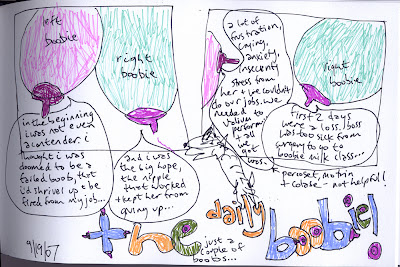 left
boobie
in the beginning
i was not even
a contender. i
thought i was
doomed to be a
failed boob, that
i'd shrivel up & be
fired from my job...
right
boobie
and i was
the big hope,
the nipple
that worked
+ kept her from
giving up...
a lot of
frustration,
crying,
anxiety,
insecurity
stress from
her + we couldn't
do our jobs. we
needed to
perform
+ all
we
got
was..
right
boobie
first 2 days
were a loss. boss
was too sick from
surgery to go to
boobie milk class...
percoset, motrin
+ colase - not helpful!
the daily boobie!
just a
couple of
boobs...
9/19/07